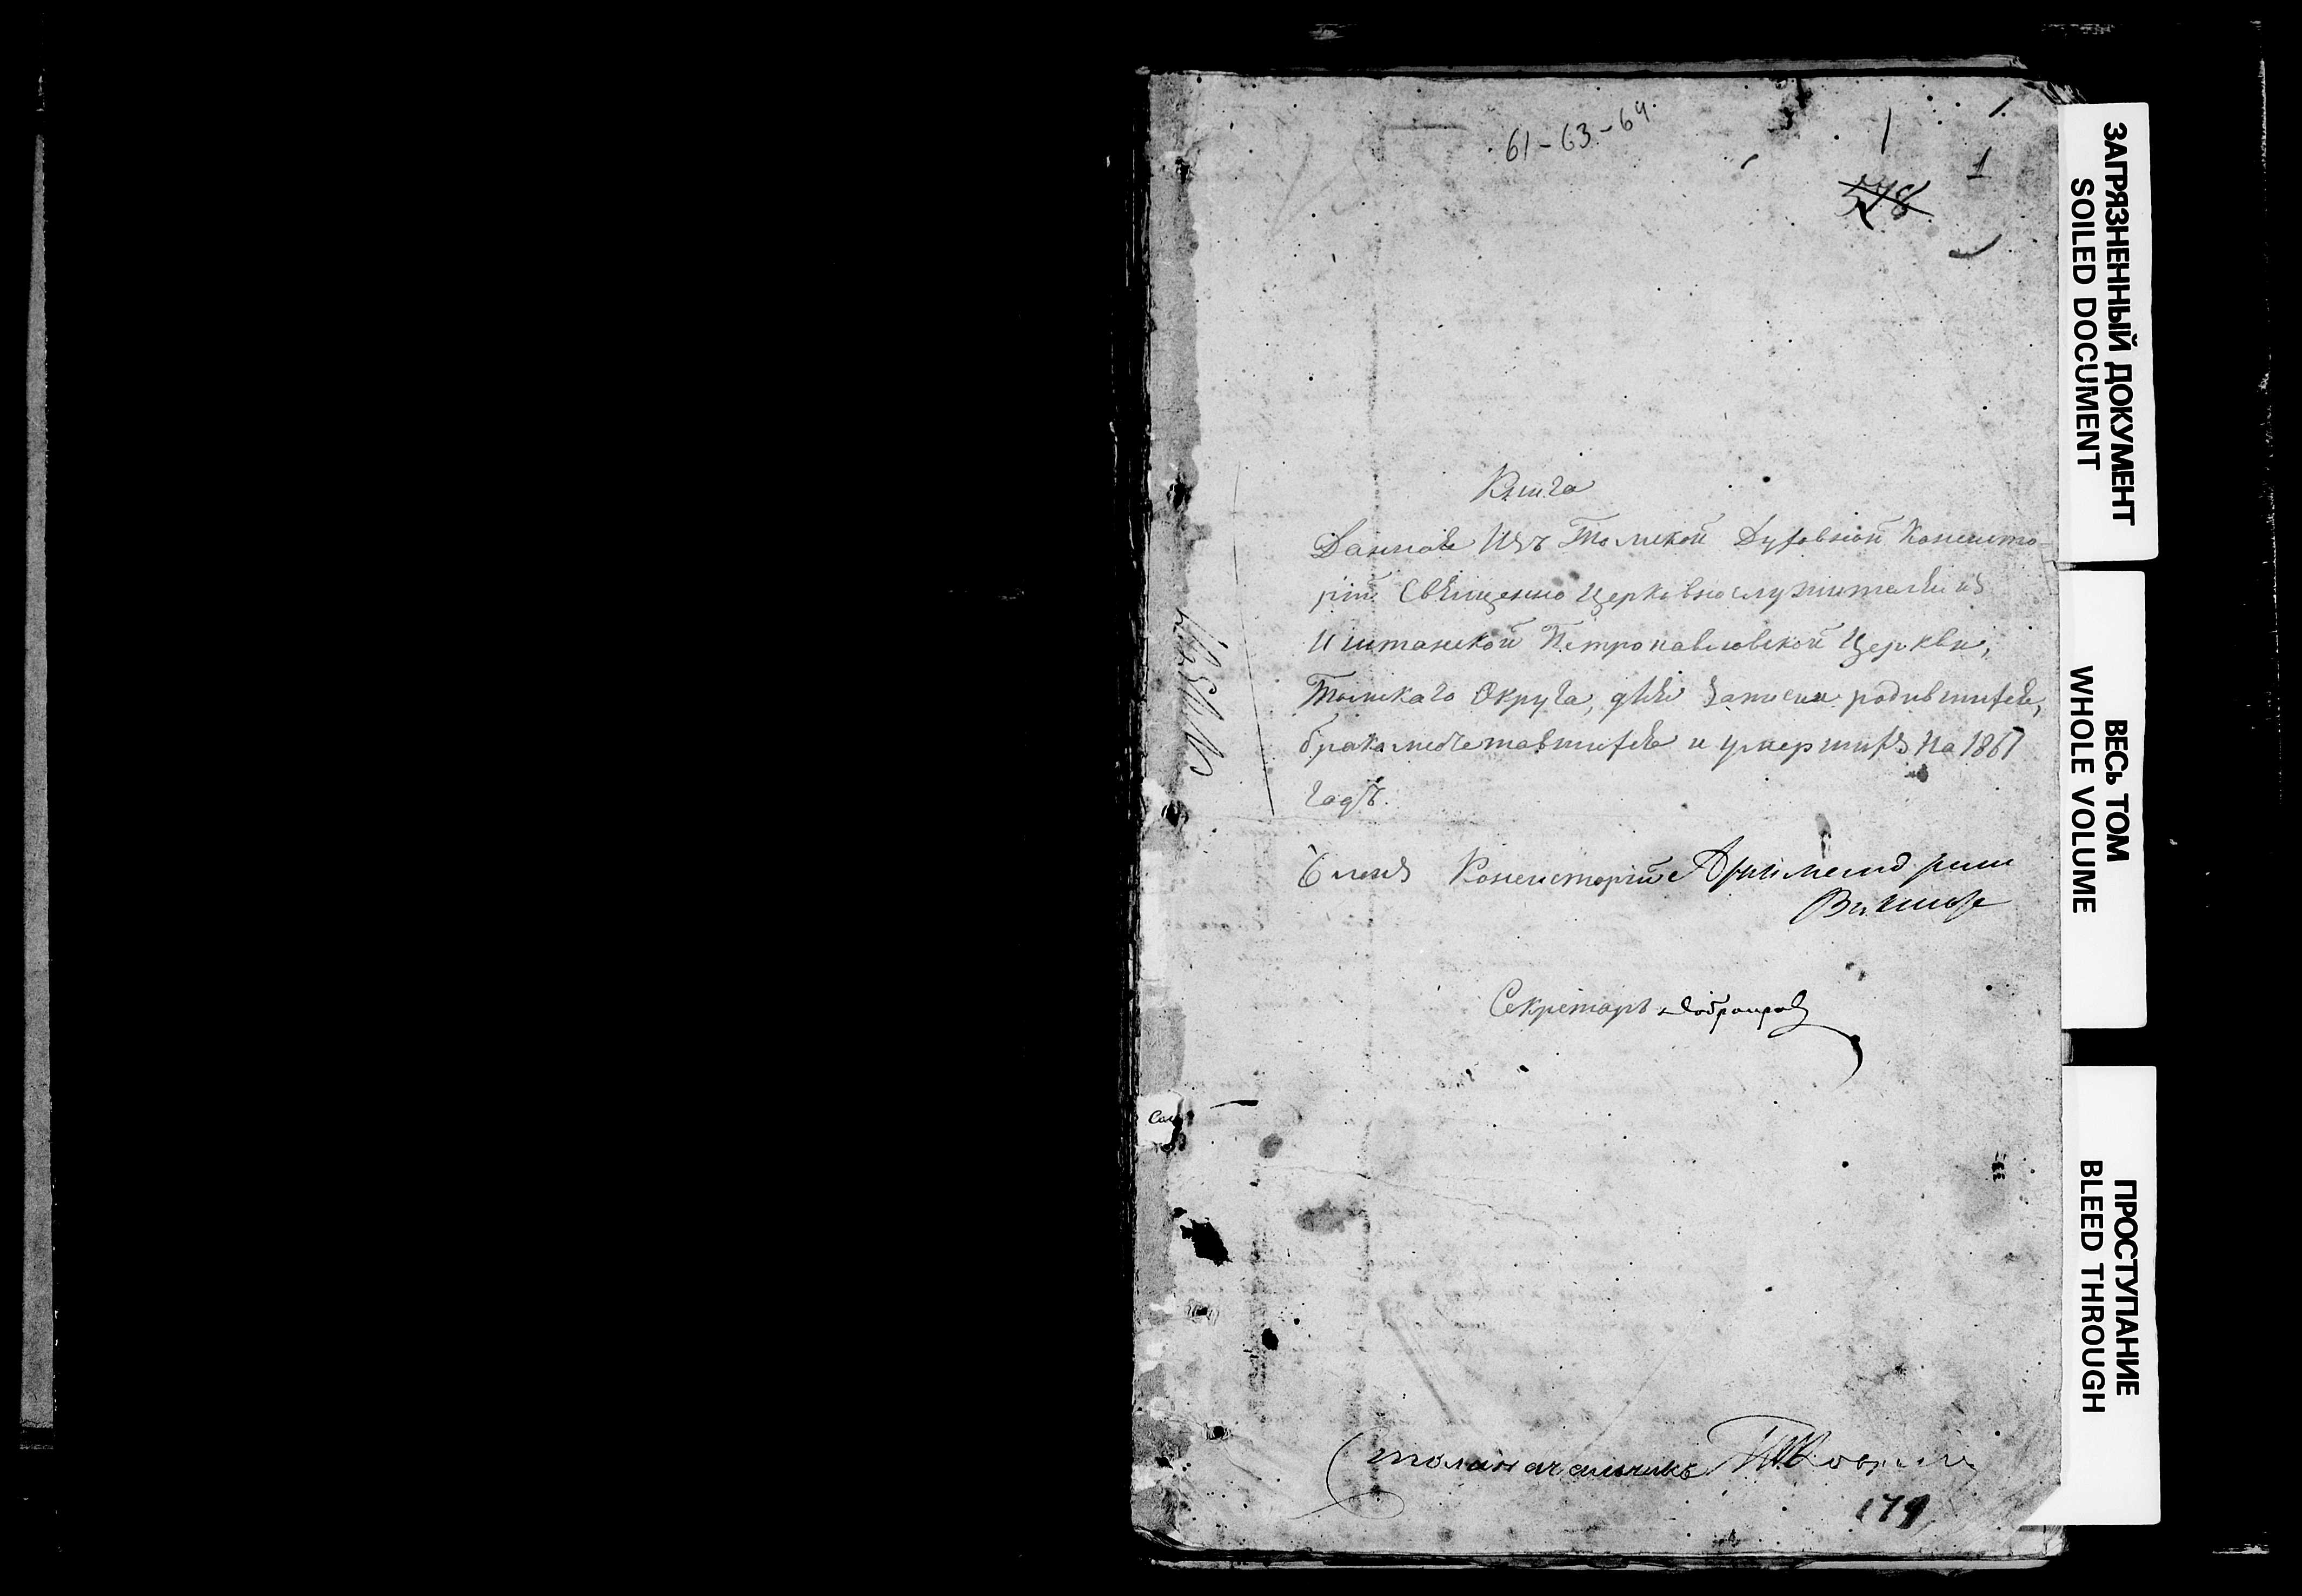 61-63-64
1
1
1
578
Книга
Данная Изъ Томской Духовной Консисто-
ріи Священно Церковнослужителямъ
Иштанской Петропавловской Церкви,
Томскаго Округа, для записи родившихся,
бракомъсочетавшихся и умершихъ на 1861
годъ.
Членъ Консисторіи Архимандритъ
Секретарь
Столоначальникъ
179
ЗАГРЯЗНЕННЫЙ ДОКУМЕНТ
SOILED DOCUMENT
ВЕСЬ ТОМ
WHOLE VOLUME
ПРОСТУПАНИЕ
BLEED THROUGH